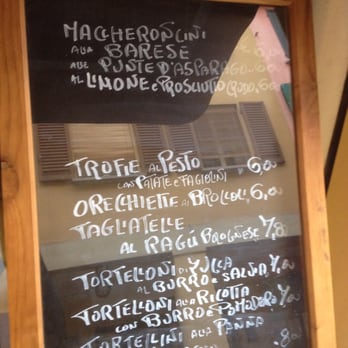 MACCHERONCINI
ALLA BARESE 6,00
ALLE PUNTE D'ASPARAGO 6,00
AL LIMONE E PROSCIUTTO CRUDO 6,00
TROFIE AL PESTO 6,00
CON PATATE E FAGIOLINI
ORECCHIETTE AI BROCCOLI 6,00
TAGLIATELLE
AL RAGÚ BOLOGNESE 7,00
TORTELLONI DI ZUCCA
AL BURRO E SALVIA 7,00
TORTELLONI ALLA RICOTTA
CON BURRO E POMODORO 7,00
TORTELLINI ALLA PANNA
8,00